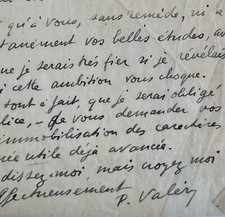 qu'à vous, sans remède, ni a
tanément vos belles études, av
ue je serais très fier si je révélais
i cette ambition vous choque.
tout à fait, que je serai obligé
lice, - de vous demander vos
immobilisation des caractères
ée utile déjà avancée.
dissez-moi, mais croyez-moi
ffectueusement
P. Valéry